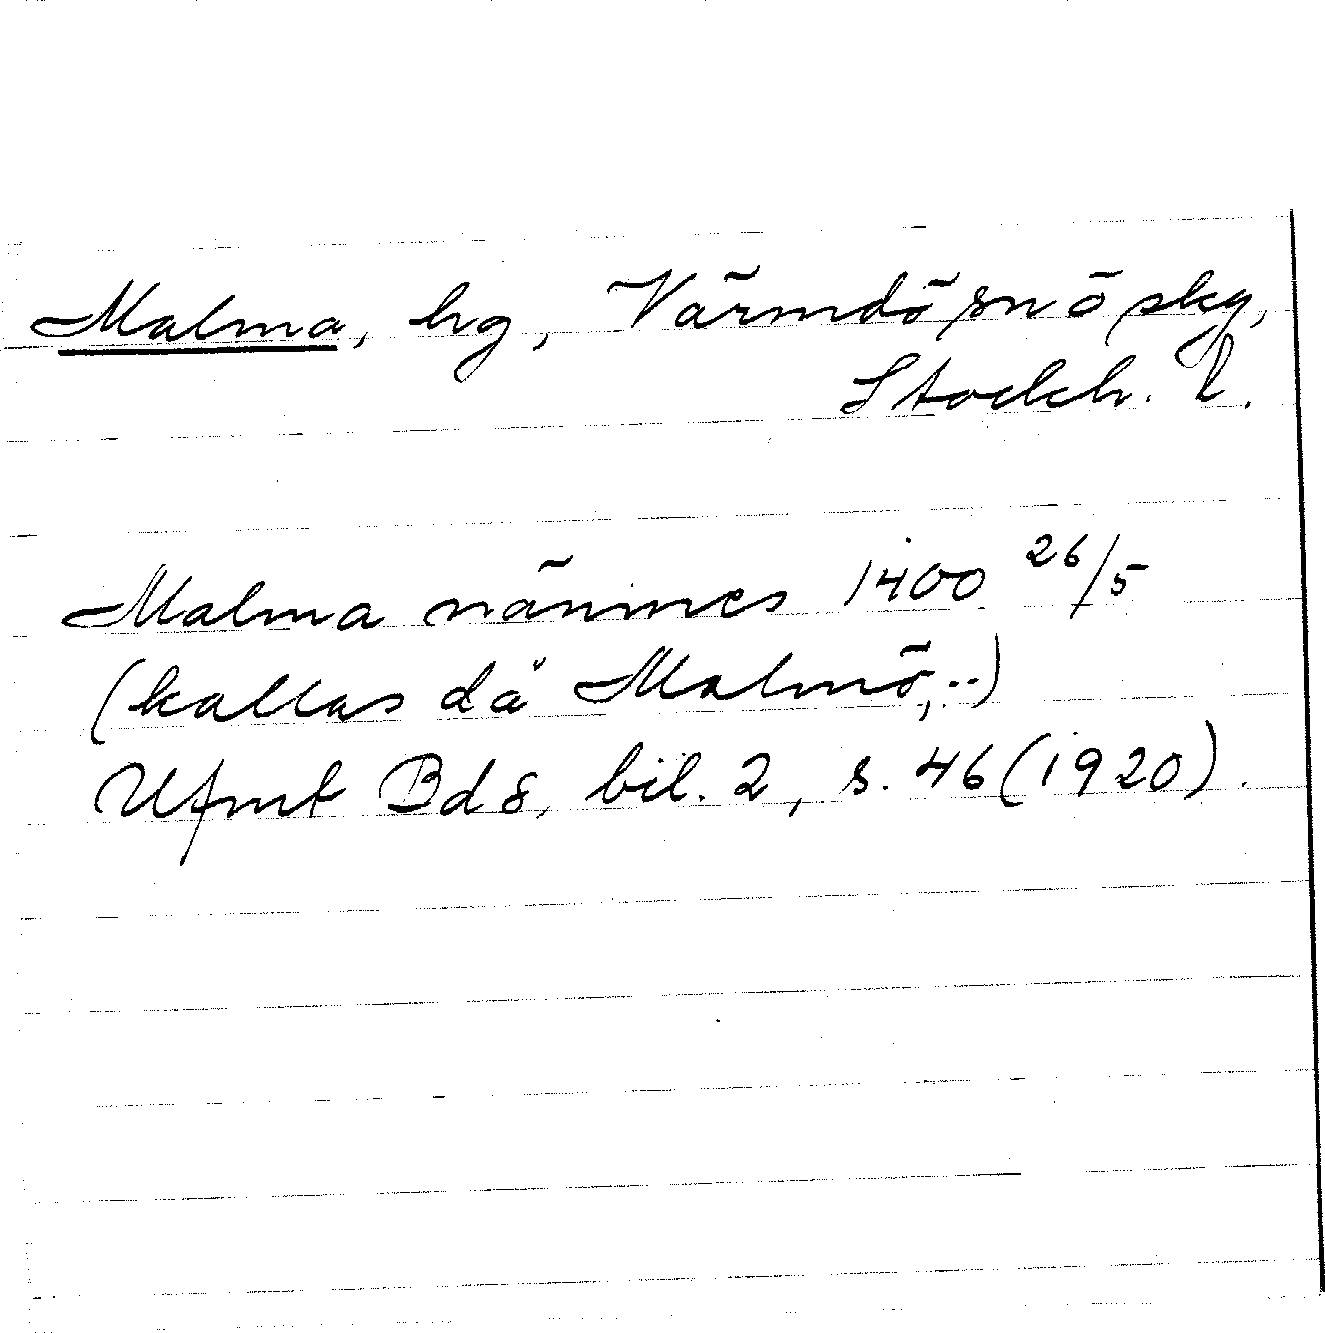 Malma, hg, Värmdö sn ö skg,
Stockh. l.
Malma nämnes 1400 26/5
(kallas då Malmö,..)
Ufmt Bd 8, bil. 2, s. 46 (1920).